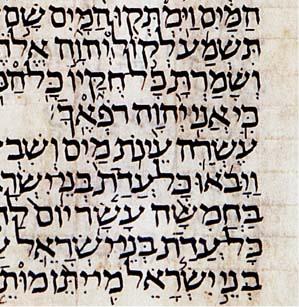 המים וימתקו המים שם
תשמע לקול יהוה אלה
ושמרת כל חקיו כל המ
כי אני יהוה רפאך
עשרה עינת מים ושב
ויבאו כל עדת בני ישרא
בחמשה עשר יום לח
כל עדת בני ישראל ע
בני ישראל מי יתן מות